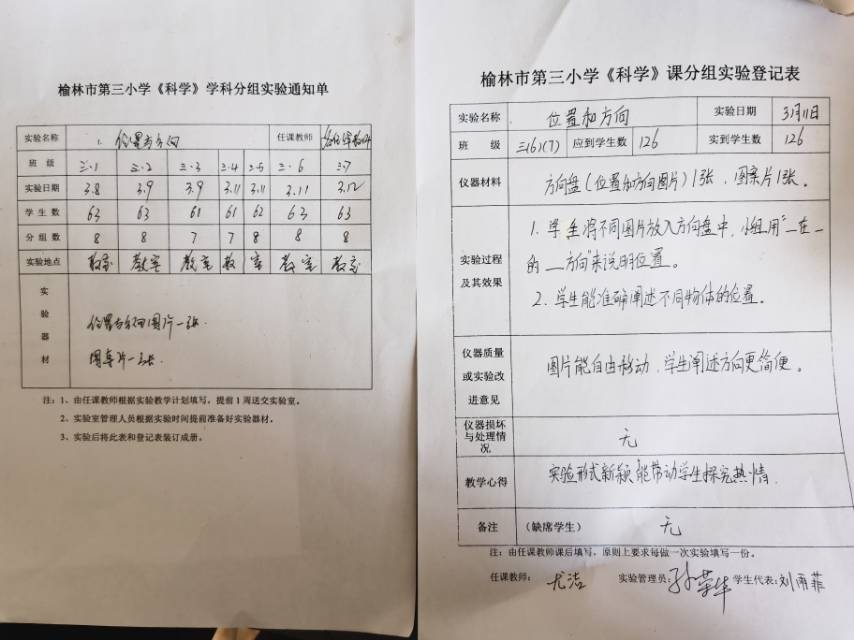 榆林市第三小学《科学》学科分组实验通知单
实验名称 1. 位置与方向 任课教师
班 级 三.1 三.2 三.3 三.4 三.5 三.6 三.7
实验日期 3.8 3.9 3.9 3.11 3.11 3.11 3.12
学生数 63 63 61 61 62 63 63
分组数 8 8 7 7 8 8 8
实验地点 教室 教室 教室 教 室 教室 教室
实验器材
位置与方向图片一张.
图案片一张.
注：1、由任课教师根据实验教学计划填写，提前1周送交实验室。
2、实验室管理人员根据实验时间提前准备好实验器材。
3、实验后将此表和登记表装订成册。
榆林市第三小学《科学》课分组实验登记表
实验名称 位置和方向 实验日期 3月11日
班 级 三(6)(7) 应到学生数 126 实到学生数 126
仪器材料 方向盘(位置和方向图片)1张，图案片1张。
实验过程及其效果
1. 学生将不同图片放入方向盘中，小组用“_在_
的_方向”来说明位置。
2. 学生能准确阐述不同物体的位置。
仪器质量或实验改进意见
图片能自由移动，学生阐述方向更简便。
仪器损坏与处理情况 无
教学心得 实验形式新颖能带动学生探究热情.
备注 (缺席学生) 无
注：由任课教师课后填写，原则上要求每做一次实验填写一份。
任课教师： 尤洁 实验管理员：孙荣华 学生代表：刘雨菲